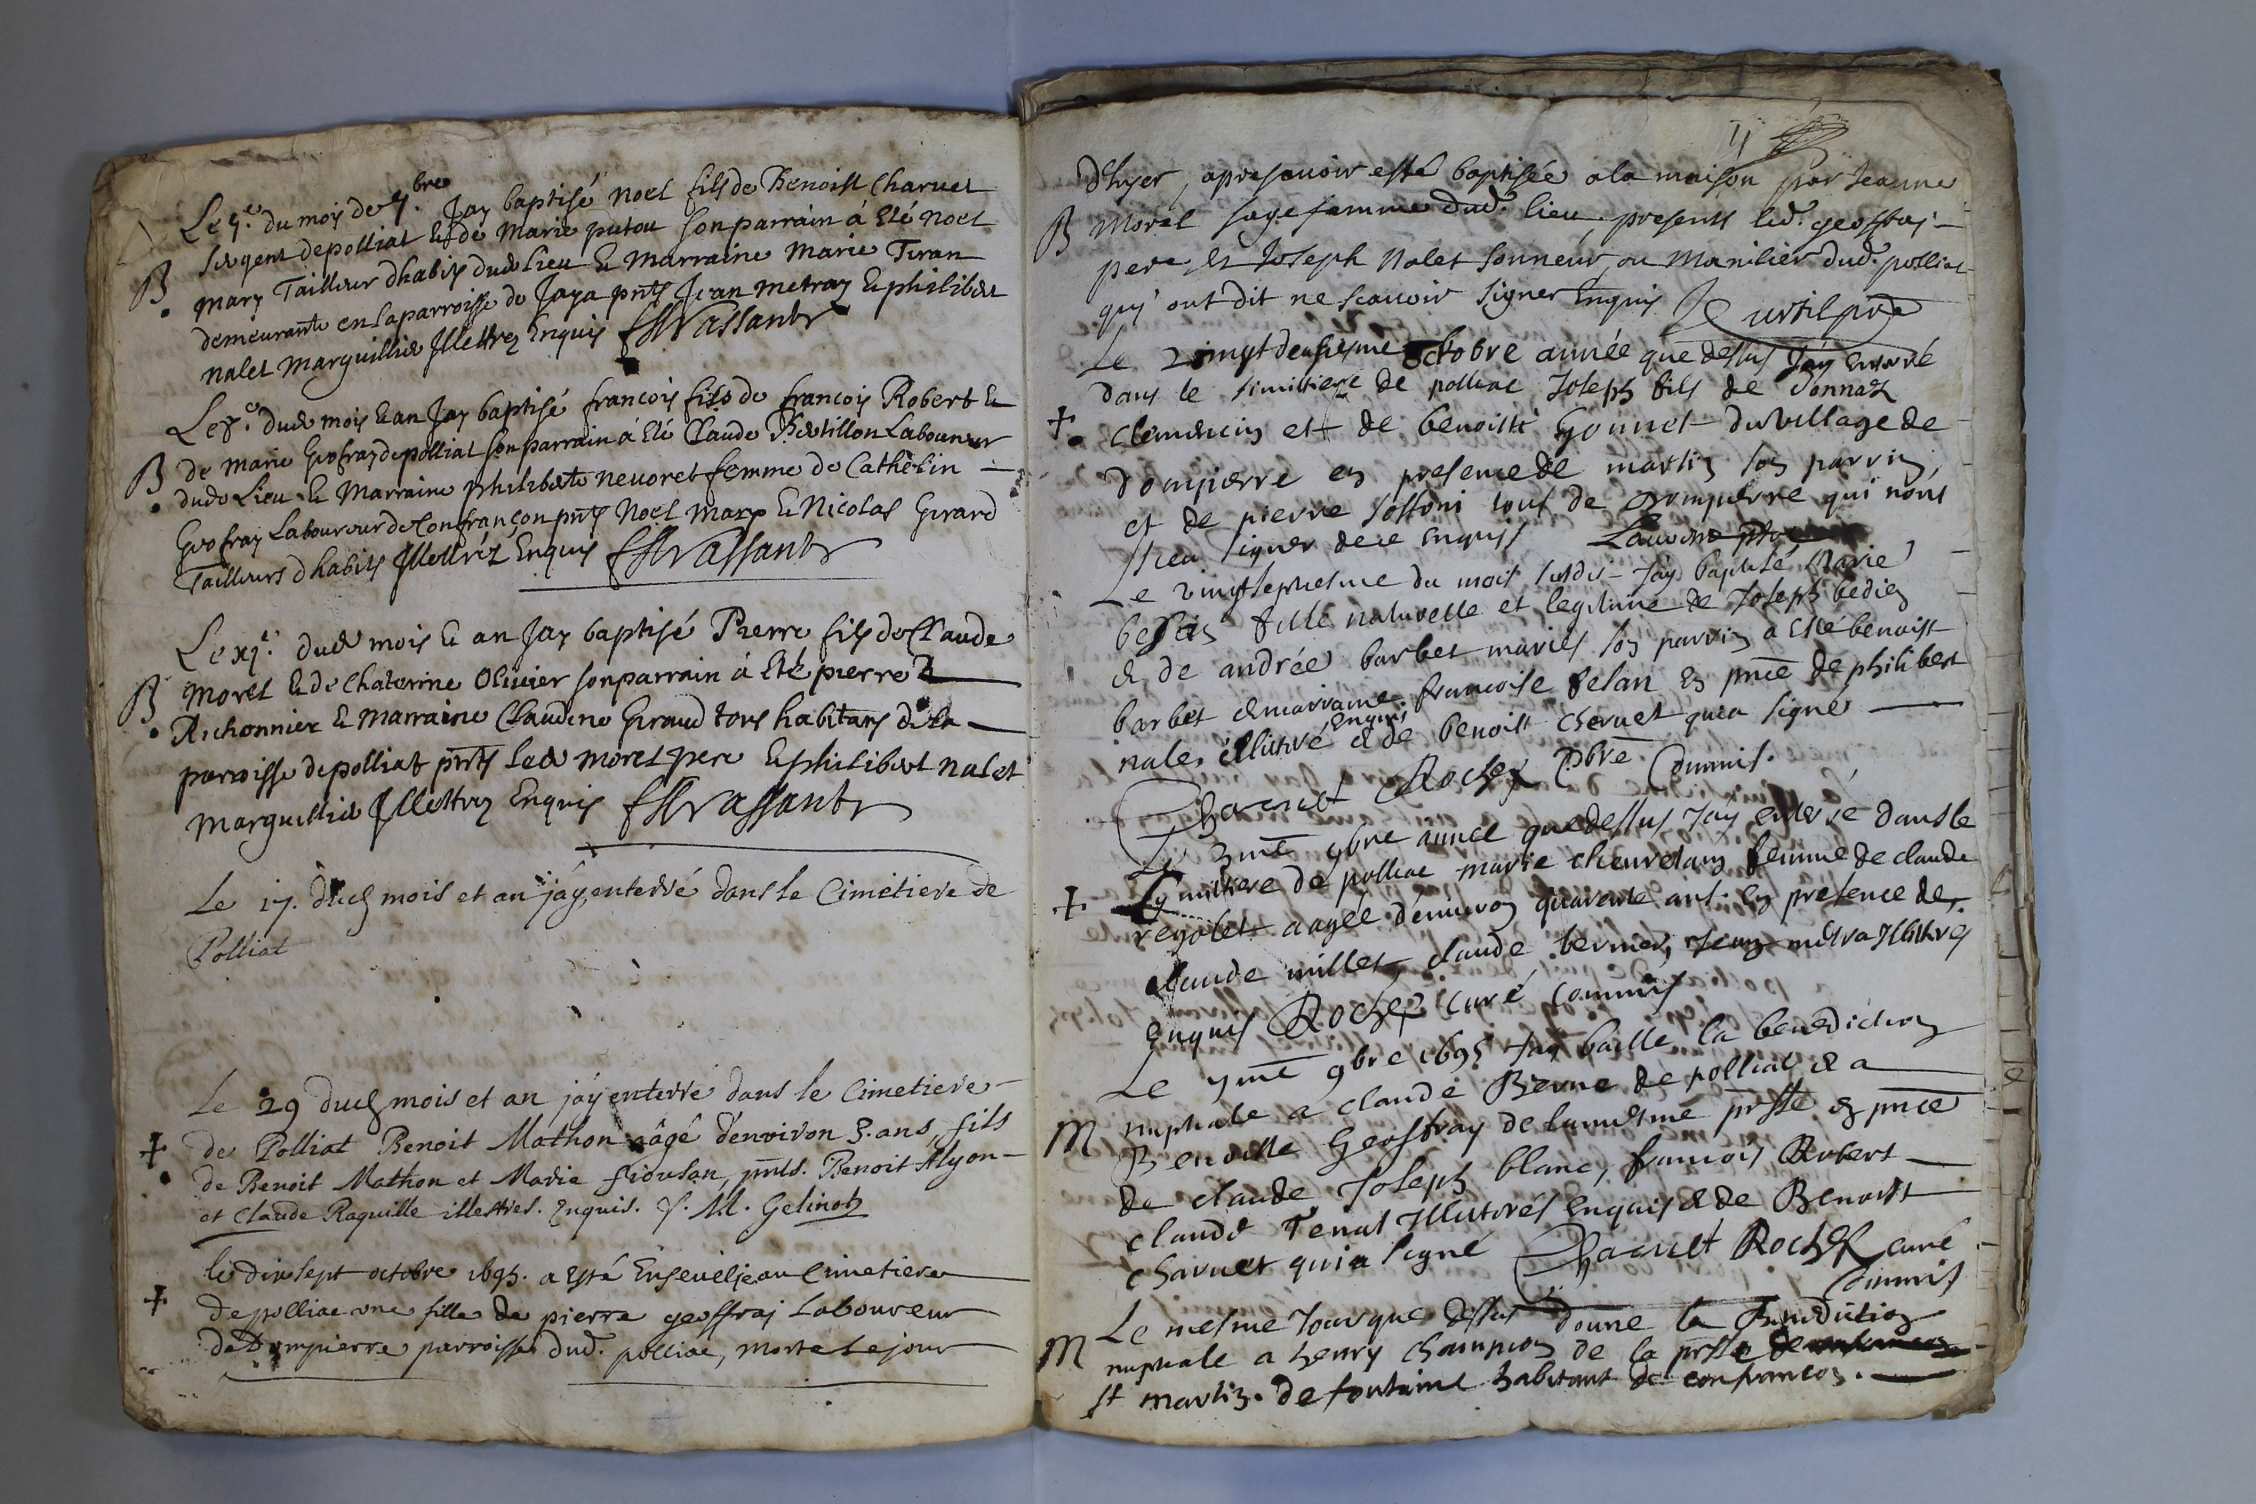 Le 7.e du mois de 7.bre Jay baptisé noel fils de Benoist Charvet
sergent de polliat & de Marie putou son parrain á Eté Noel
B mary Tailleur dhabits dud Lieu & Marraine Marie Tiran
demeurante en la parroisse de Jaya pnts Jean metray & philibert
nalet Marguillier Illettrez Enquis
Le 8.e dud mois & an Jay baptisé francois fils de francois Robert &
B de Marie Geofray de polliat son parrain á Eté Claude Laboureur
dud Lieu & Marraine philiberte nevoret femme de Cathelin
Geofray Laboureur de Confrançon pnts Noel mary & Nicolas Girard
Tailleurs dhabits Illettréz Enquis
Le xj.e dud mois & an Jay baptisé Pierre fils de Claude
B Morel & de Chaterine Olivier son parrain á Eté pierre
Richonnier & Marraine Claudine Giraud tous habitans de la
parroisse de polliat pnts led morel pere & philibert nalet
Marguillier Illettrez Enquis
Le 17. dud mois et an j'ay enterré dans le Cimetiere de
Polliat
Le 29 dud mois et an j'ay enterré dans le Cimetiere
de Polliat Benoit Mathon âgé d'environ 3. ans, fils
de Benoit Mathon et Marie, pnts. Benoit Alyon
et Claude Raquille illettrés. Enquis. f. M. Gelinot
le dix sept octobre 1695. a esté Ensevelie au Cimetiere
de polliac une fille de pierre geoffraj Laboureur
de Dompierre parroisse dud. polliac, morte le jour
11
d'hyer, apres avoir esté baptisée a la maison par Jeanne
B Morel sage femme dud. lieu, presents led. geoffraj
pere, et Joseph Nalet sonneur, ou Manilier dud. polliac
qui ont dit ne scavoir signer Enquis
Le vingt deusiesme octobre année que dessus Jay enterré
dans le simittiere de polliac Joseph fils de Donnat
Clemencin et de benoitte Gonnet du village de
Dompierre en presence de martin son parrin,
et de pierre tous de Dompierre qui nont
sceu signer de ce enquis
Le vingt septiesme du mois susdit Jay baptisé Marie
fille naturelle et legitime de Joseph bedien
& de andrée barbet mariés son parrin a esté benoist
barbet & marraine francoise felan en pnce de philibert
nalet illittré enquis & de benoist charvet qui a signé
Charvet Rochex Pbre Commis.
Le 3me 9bre année que dessus Jay enterré dans le
Cymittiere de polliac marie chevretany femme de claude
reyolet aagée d'environ quarente ans. en presence de
claude millet, claude bernier, Jean metra Illitrés
Enquis Rochex curé commis
Le 7me 9bre 1695 Jay baillé la benediction
M nuptiale a claude Bierne de polliat & a
Benoitte Geoffray de la mesme psse en pnce
de claude Joseph blanc, francois Robert
claude Tenat Illitrés Enquis & de Benoist
charvet qui a signé Charvet Rochex curé
Commis
Le mesme Jour que dessus donné la Benediction
M nuptiale a henry champion de la psse de
st martin. de fontaine habitant de confrancon.